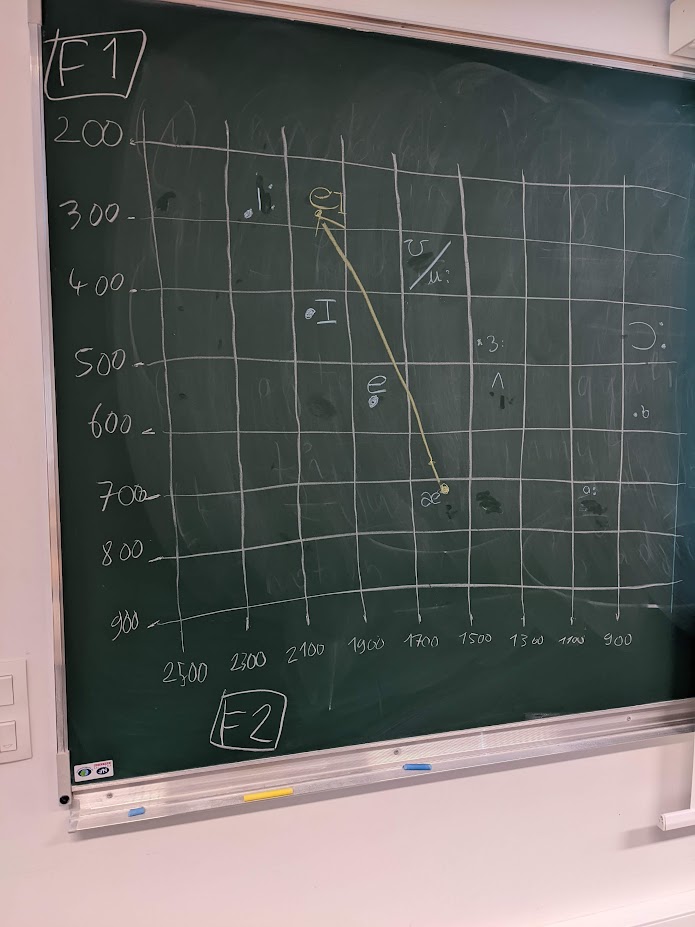 F1
200
300
400
500
600
700
800
900
i:
eɪ
ʊ
u:
I
ɜ:
ɔ:
e
ʌ
ɒ
æ
ɑ:
2500 2300 2100 1900 1700 1500 1300 1100 900
F2